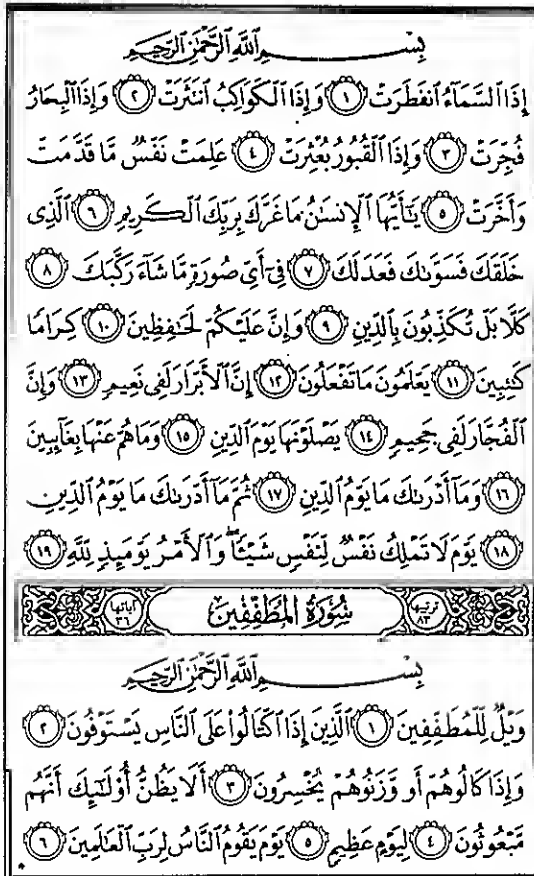 بِسْمِ ٱللَّهِ ٱلرَّحْمَٰنِ ٱلرَّحِيمِ
إِذَا ٱلسَّمَآءُ ٱنفَطَرَتْ ١ وَإِذَا ٱلْكَوَاكِبُ ٱنتَثَرَتْ ٢ وَإِذَا ٱلْبِحَارُ
فُجِّرَتْ ٣ وَإِذَا ٱلْقُبُورُ بُعْثِرَتْ ٤ عَلِمَتْ نَفْسٌ مَّا قَدَّمَتْ
وَأَخَّرَتْ ٥ يَٰٓأَيُّهَا ٱلْإِنسَٰنُ مَا غَرَّكَ بِرَبِّكَ ٱلْكَرِيمِ ٦ ٱلَّذِى
خَلَقَكَ فَسَوَّىٰكَ فَعَدَلَكَ ٧ فِىٓ أَىِّ صُورَةٍ مَّا شَآءَ رَكَّبَكَ ٨
كَلَّا بَلْ تُكَذِّبُونَ بِٱلدِّينِ ٩ وَإِنَّ عَلَيْكُمْ لَحَٰفِظِينَ ١٠ كِرَامًا
كَٰتِبِينَ ١١ يَعْلَمُونَ مَا تَفْعَلُونَ ١٢ إِنَّ ٱلْأَبْرَارَ لَفِى نَعِيمٍ ١٣ وَإِنَّ
ٱلْفُجَّارَ لَفِى جَحِيمٍ ١٤ يَصْلَوْنَهَا يَوْمَ ٱلدِّينِ ١٥ وَمَا هُمْ عَنْهَا بِغَآئِبِينَ
١٦ وَمَآ أَدْرَىٰكَ مَا يَوْمُ ٱلدِّينِ ١٧ ثُمَّ مَآ أَدْرَىٰكَ مَا يَوْمُ ٱلدِّينِ
١٨ يَوْمَ لَا تَمْلِكُ نَفْسٌ لِّنَفْسٍ شَيْـًٔا ۖ وَٱلْأَمْرُ يَوْمَئِذٍ لِّلَّهِ ١٩
ترتيبها ٨٣ سُورَةُ المُطَفِّفِينَ آياتها ٣٦
بِسْمِ ٱللَّهِ ٱلرَّحْمَٰنِ ٱلرَّحِيمِ
وَيْلٌ لِّلْمُطَفِّفِينَ ١ ٱلَّذِينَ إِذَا ٱكْتَالُوا۟ عَلَى ٱلنَّاسِ يَسْتَوْفُونَ ٢
وَإِذَا كَالُوهُمْ أَو وَّزَنُوهُمْ يُخْسِرُونَ ٣ أَلَا يَظُنُّ أُو۟لَٰٓئِكَ أَنَّهُم
مَّبْعُوثُونَ ٤ لِيَوْمٍ عَظِيمٍ ٥ يَوْمَ يَقُومُ ٱلنَّاسُ لِرَبِّ ٱلْعَٰلَمِينَ ٦